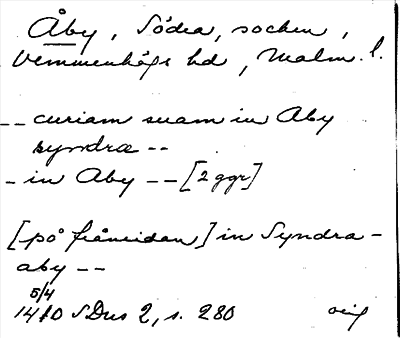 Åby, Södra, socken,
Vemmenhögs hd, Malm. l.
-- curiam suam in Aby
syndræ --
- in Aby -- [2 ggr]
[på frånsidan] in Syndra-
aby --
5/4
1410 SDns 2, s. 280 orig